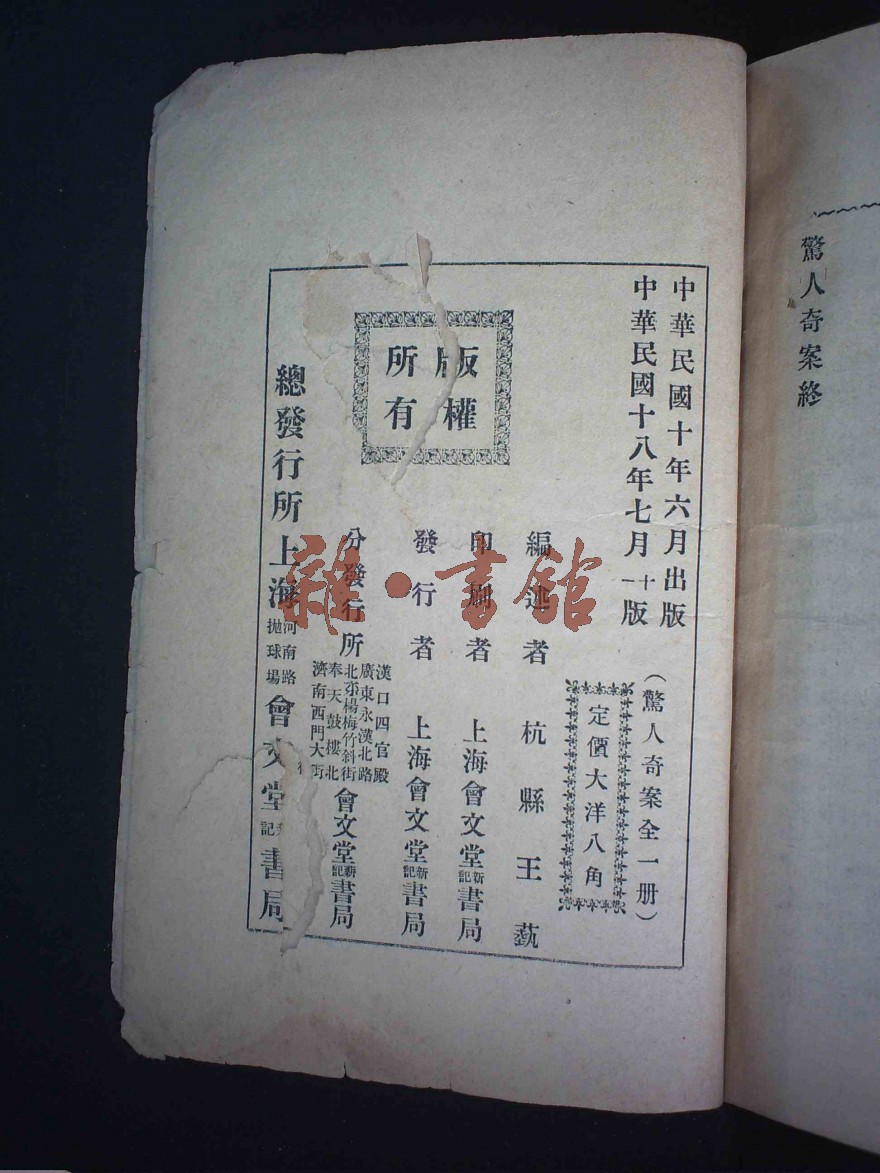 驚人奇案終
中華民國十年六月出版
中華民國十八年七月十一版
（驚人奇案全一册）
定價大洋八角
編述者 杭縣王蓺
印刷者 上海會文堂新記書局
發行者 上海會文堂新記書局
分發行所
漢口四官殿
廣東永漢北路
北京楊梅竹斜街
奉天鼓樓北
濟南西門大街
會文堂新記書局
版權所有
總發行所上海
河南路
拋球場
會文堂新記書局
雜·書館